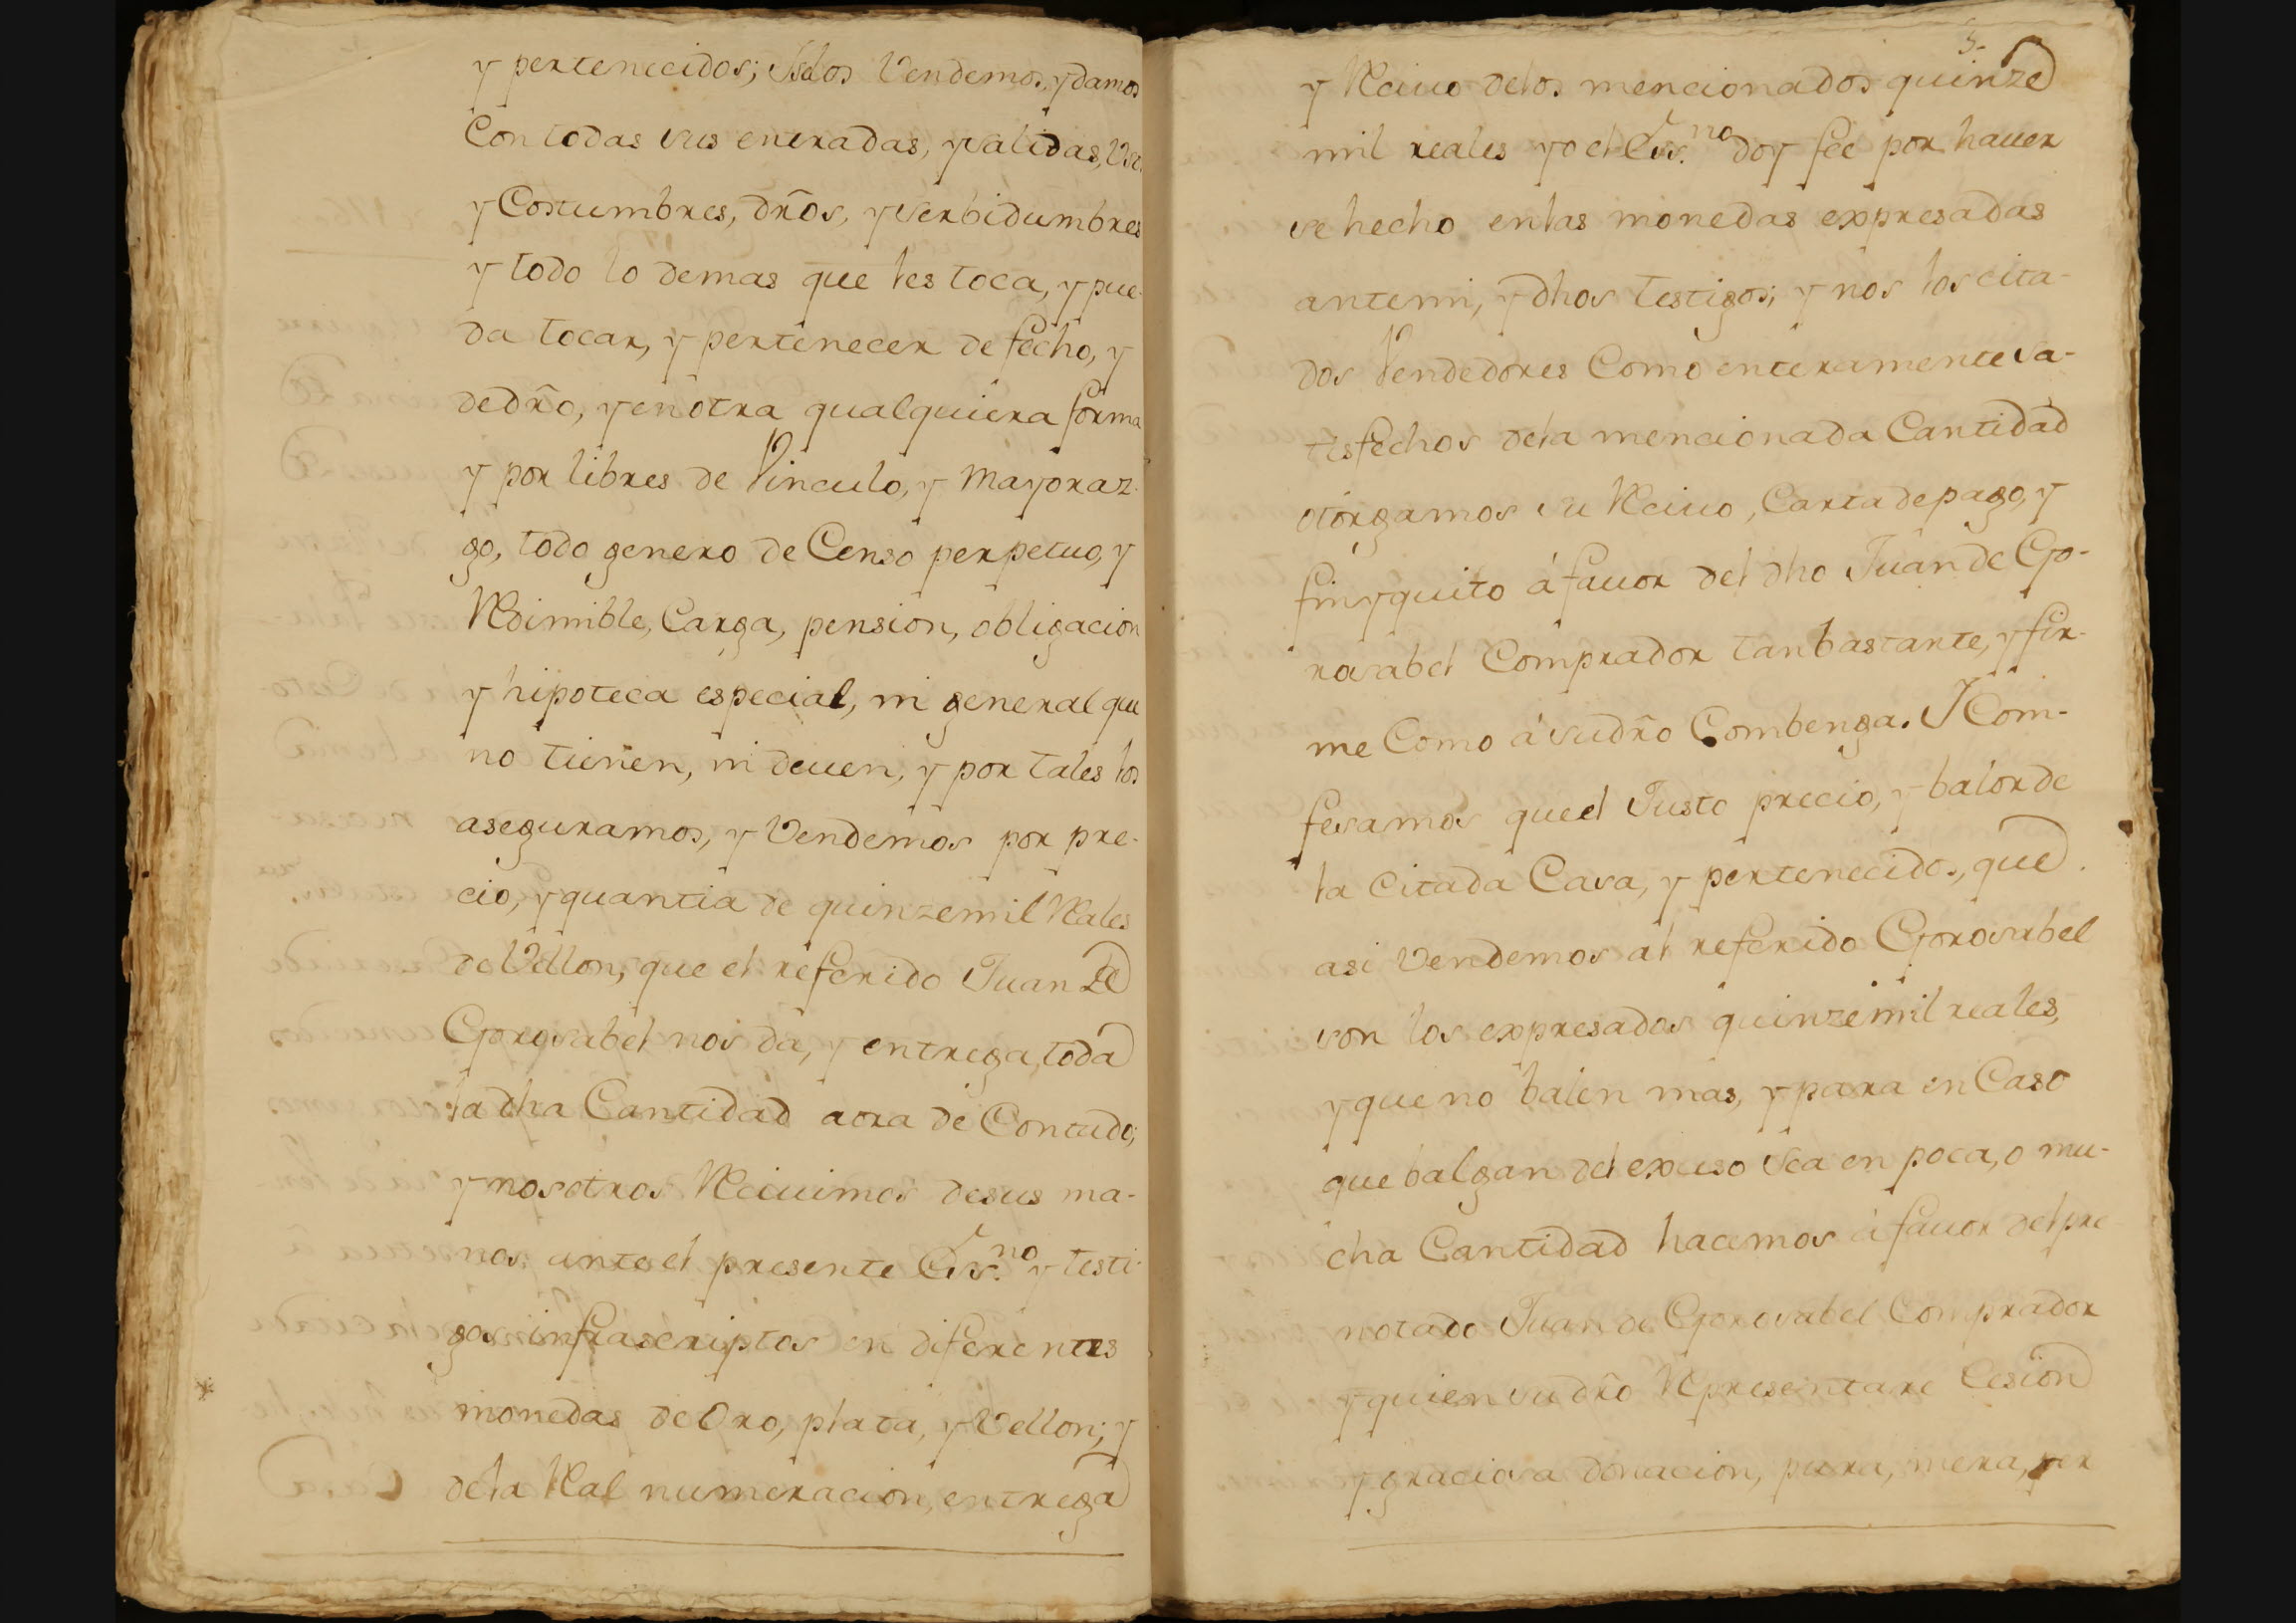 y pertenecidos; Iselos Vendemos, y damos
Con todas sus entradas, y salidas, Usos
y Costumbres, drños, y serbidumbres
y todo lo demas que les toca, y pue-
da tocar, y pertenecer de fecho, y
de drño, y en otra qualquiera forma
y por libres de Vinculo, y Mayoraz-
go, todo genero de Censo perpetuo, y
Redimible, Carga, pension, obligacion
y hipoteca especial, ni general que
no tienen, ni deuen, y por tales los
aseguramos, y Vendemos por pre-
cio, y quantia de quinze mil Reales
de Vellon, que el referido Juan de
Gorosabel nos da, y entrega, toda
la dha Cantidad aora de Contado;
y nosotros Reciuimos de sus ma-
nos ante el presente Ess.no y testi-
gos infrascriptos en diferentes
monedas de Oro, plata, y Vellon; y
de la Real numeracion, entrega
5
y Reciuo de los mencionados quinze
mil reales yo el Ess.no doy fee por hauer
se hecho en las monedas expresadas
ante mi, y dhos testigos; y nos los cita-
dos Vendedores Como enteramente sa-
tisfechos de la mencionada Cantidad
otorgamos su Reciuo, Carta de pago, y
finyquito á fauor del dho Juan de Go-
rosabel Comprador tan bastante, y fir-
me Como á su drño Combenga. I Com-
fesamos que el Justo precio, y balor de
la Citada Casa, y pertenecidos, que
asi Vendemos al referido Gorosabel
son los expresados quinze mil reales,
y que no balen mas, y para en Caso
que balgan del exceso sea en poca, o mu-
cha Cantidad hacemos á fauor del pre-
notado Juan de Gorosabel Comprador
y quien su drño Representare Cesion
y graciosa donacion, pura, mera, per